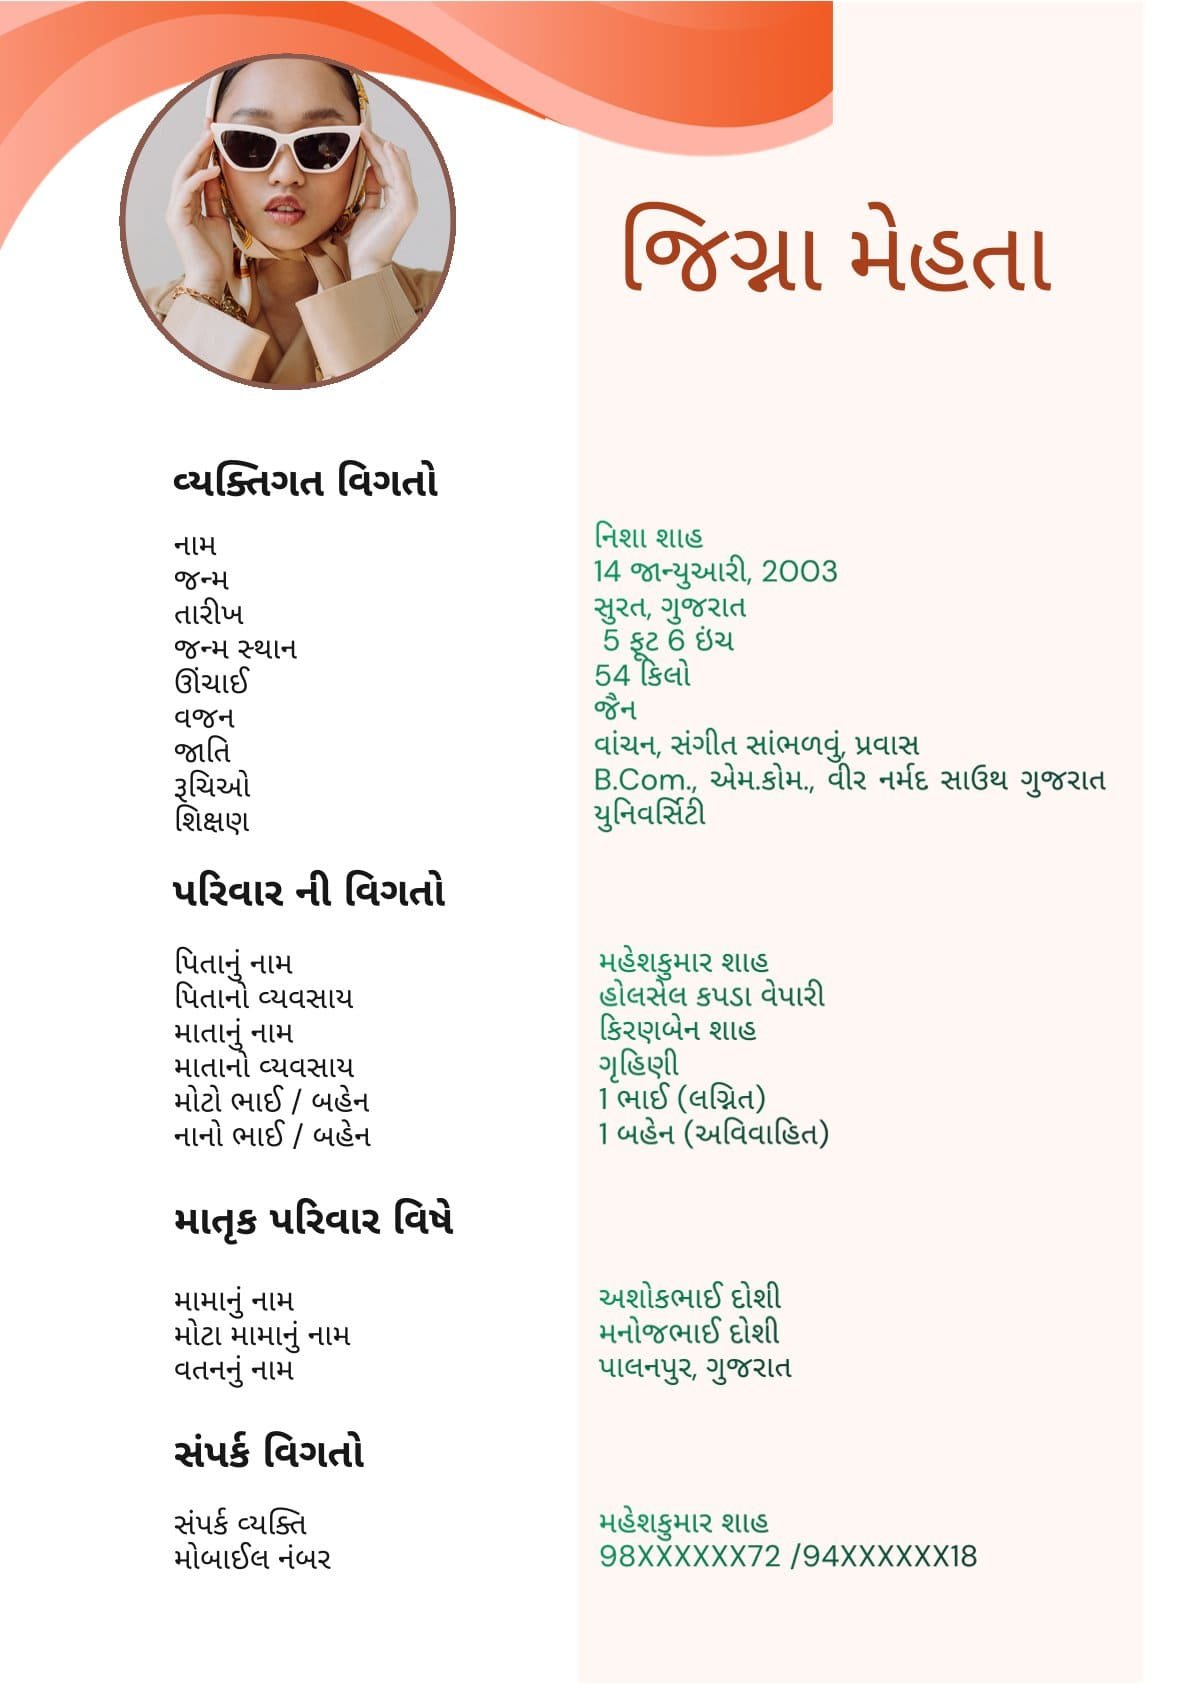 જિગ્ના મેહતા
વ્યક્તિગત વિગતો
નામ
જન્મ
તારીખ
જન્મ સ્થાન
ઊંચાઈ
વજન
જાતિ
રૂચિઓ
શિક્ષણ
નિશા શાહ
14 જાન્યુઆરી, 2003
સુરત, ગુજરાત
5 ફૂટ 6 ઇંચ
54 કિલો
જૈન
વાંચન, સંગીત સાંભળવું, પ્રવાસ
B.Com., એમ.કોમ., વીર નર્મદ સાઉથ ગુજરાત
યુનિવર્સિટી
પરિવાર ની વિગતો
પિતાનું નામ
પિતાનો વ્યવસાય
માતાનું નામ
માતાનો વ્યવસાય
મોટો ભાઈ / બહેન
નાનો ભાઈ / બહેન
મહેશકુમાર શાહ
હોલસેલ કપડા વેપારી
કિરણબેન શાહ
ગૃહિણી
1 ભાઈ (લગ્નિત)
1 બહેન (અવિવાહિત)
માતૃક પરિવાર વિષે
મામાનું નામ
મોટા મામાનું નામ
વતનનું નામ
અશોકભાઈ દોશી
મનોજભાઈ દોશી
પાલનપુર, ગુજરાત
સંપર્ક વિગતો
સંપર્ક વ્યક્તિ
મોબાઈલ નંબર
મહેશકુમાર શાહ
98XXXXXX72 /94XXXXXX18